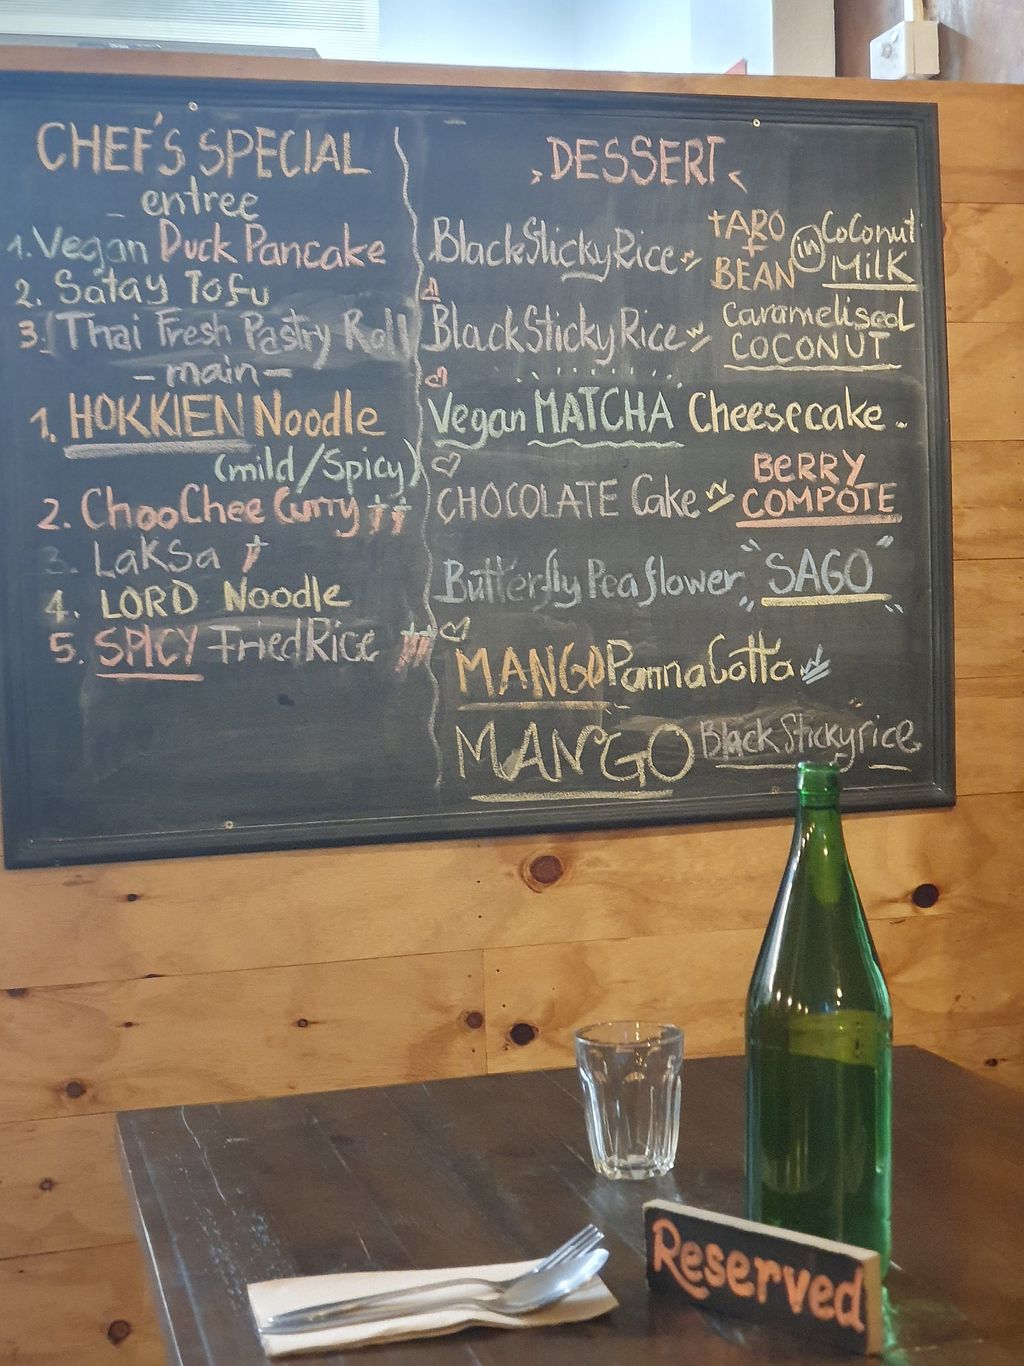 CHEF'S SPECIAL
entree
1. Vegan Duck Pancake
2. Satay Tofu
3. Thai Fresh Pastry Roll
- main -
1. HOKKIEN Noodle
(mild/Spicy)
2. ChooChee Curry
3. Laksa
4. LORD Noodle
5. SPICY Fried Rice
DESSERT
Black Sticky Rice w TARO + BEAN in Coconut MILK
Black Sticky Rice w Caramelised COCONUT
Vegan MATCHA Cheesecake.
CHOCOLATE Cake w BERRY COMPOTE
Butterfly Pea flower "SAGO"
MANGO Panna Cotta
MANGO Black Sticky rice
Reserved